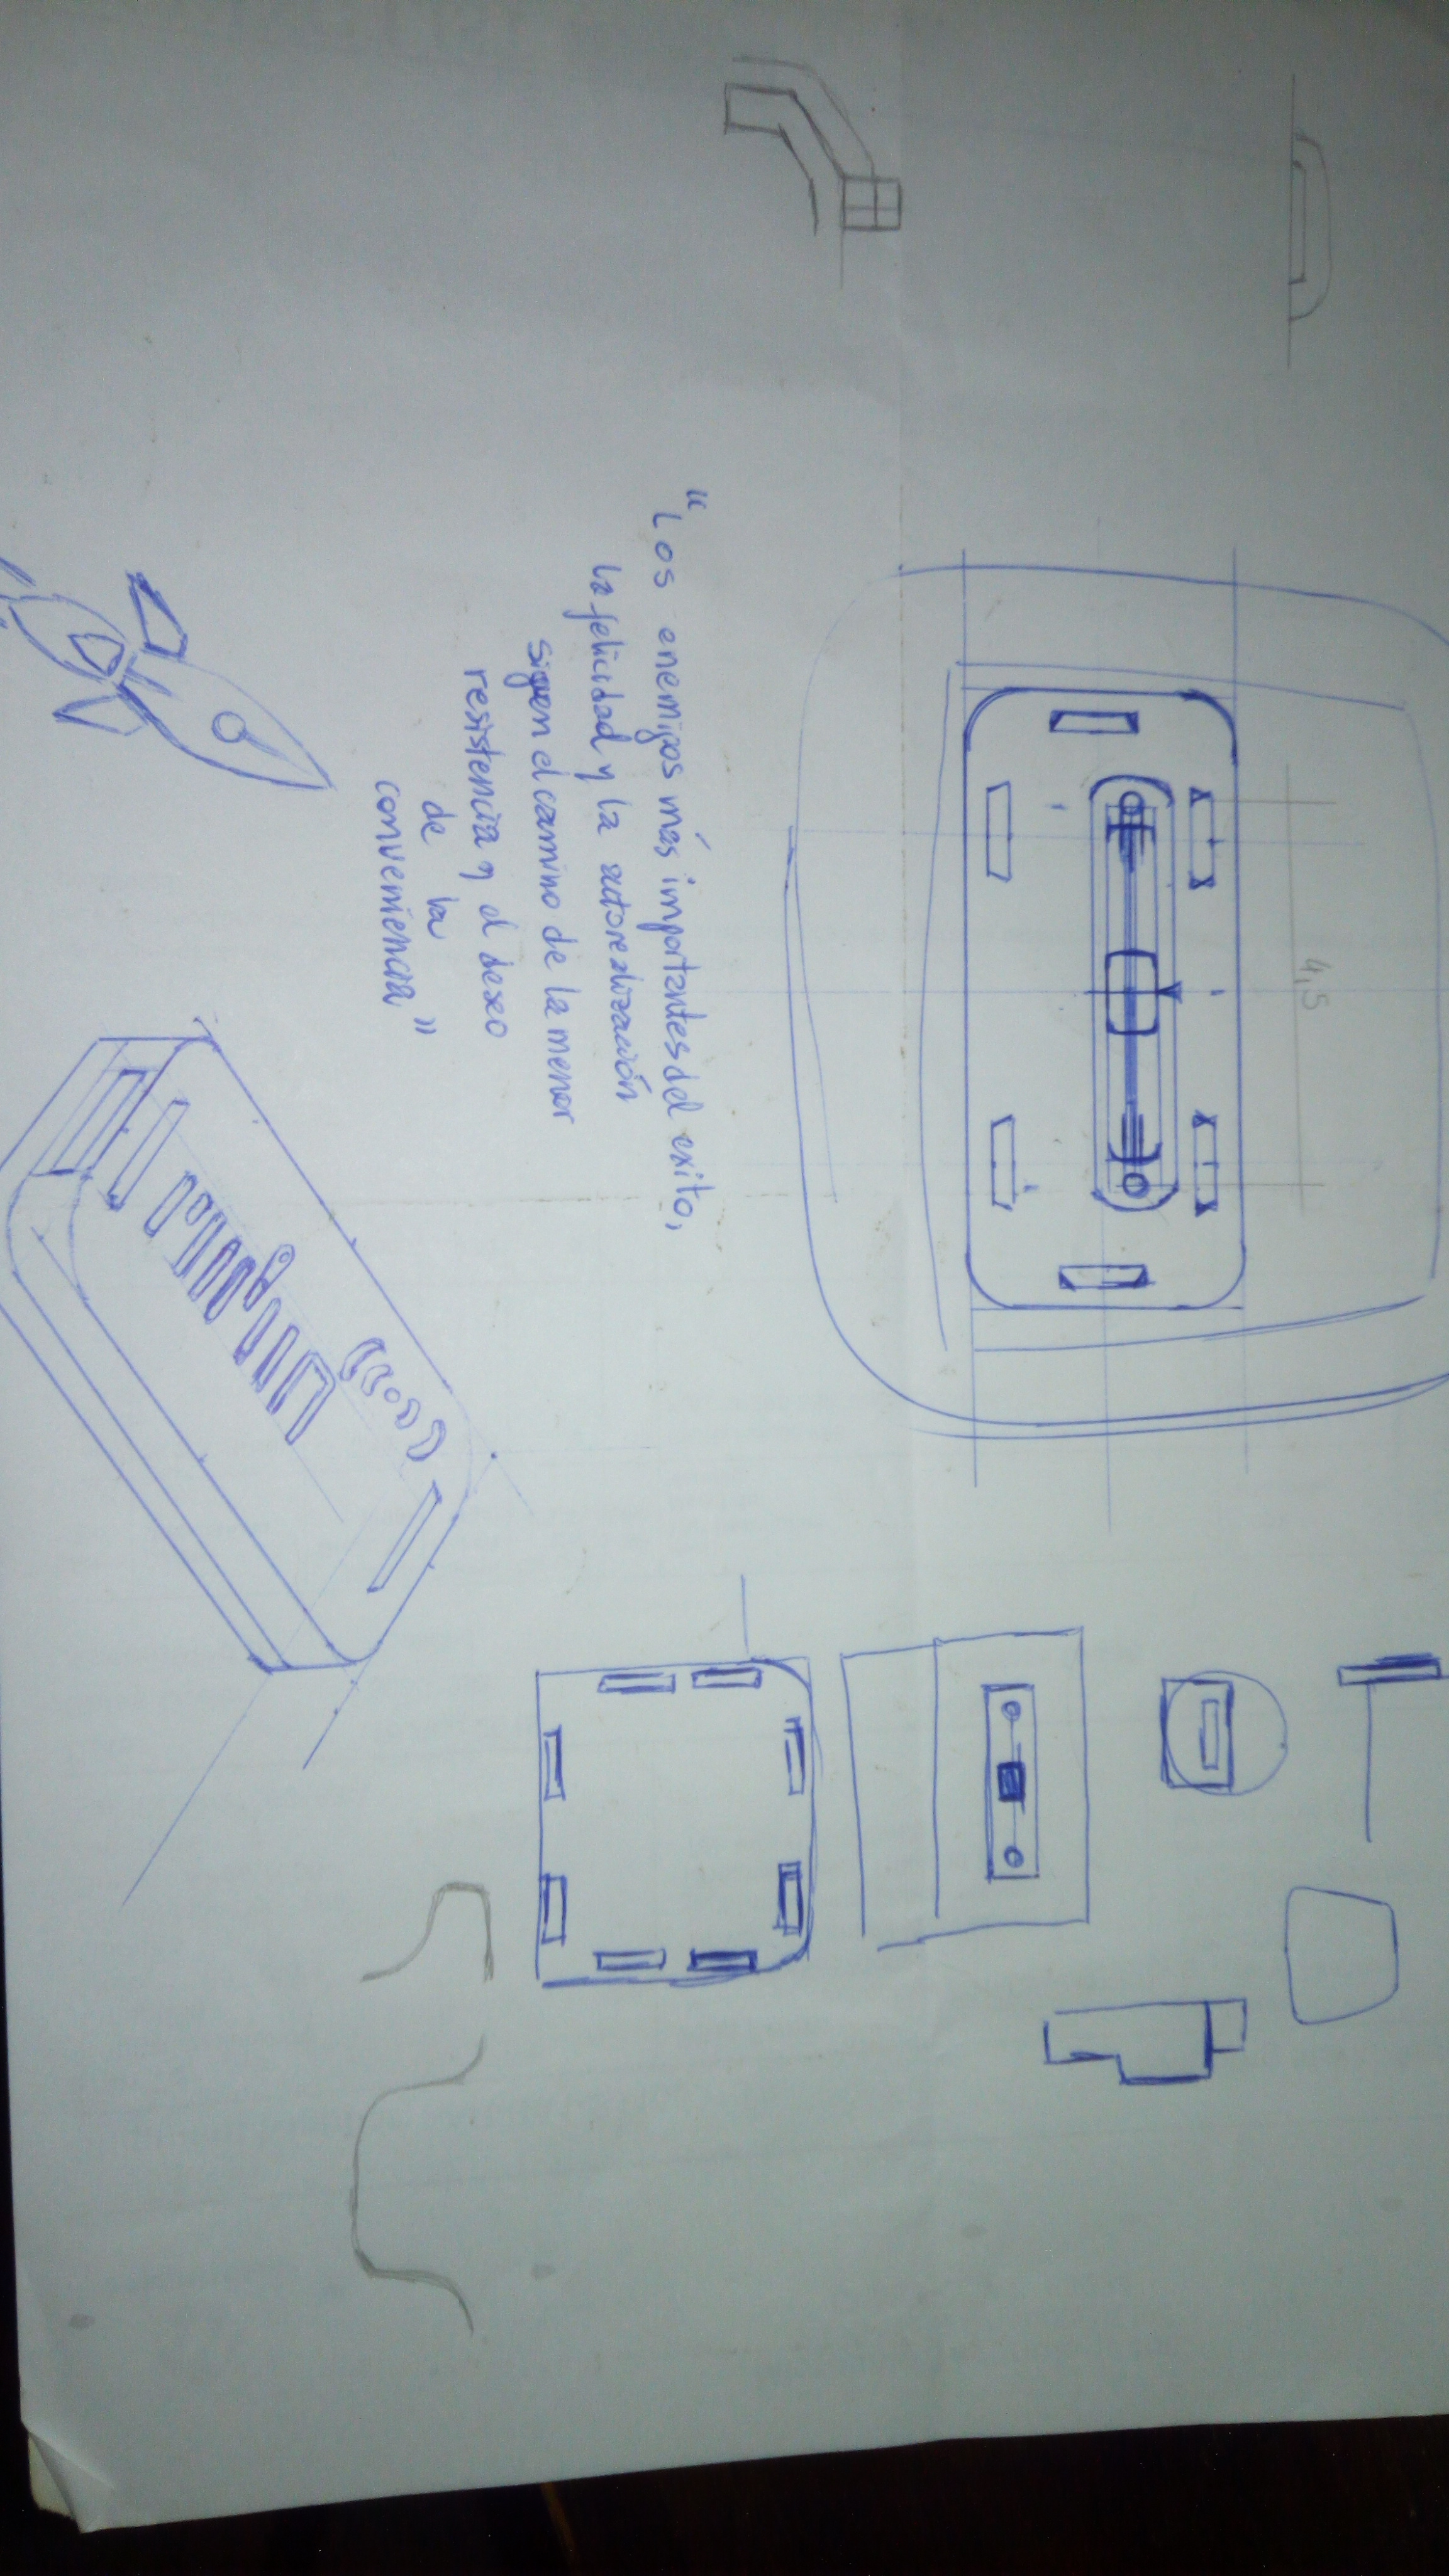 4,5
"Los enemigos más importantes del exito,
la felicidad y la autorealización
siguen el camino de la menor
resistencia y el deseo
de la
conveniencia"